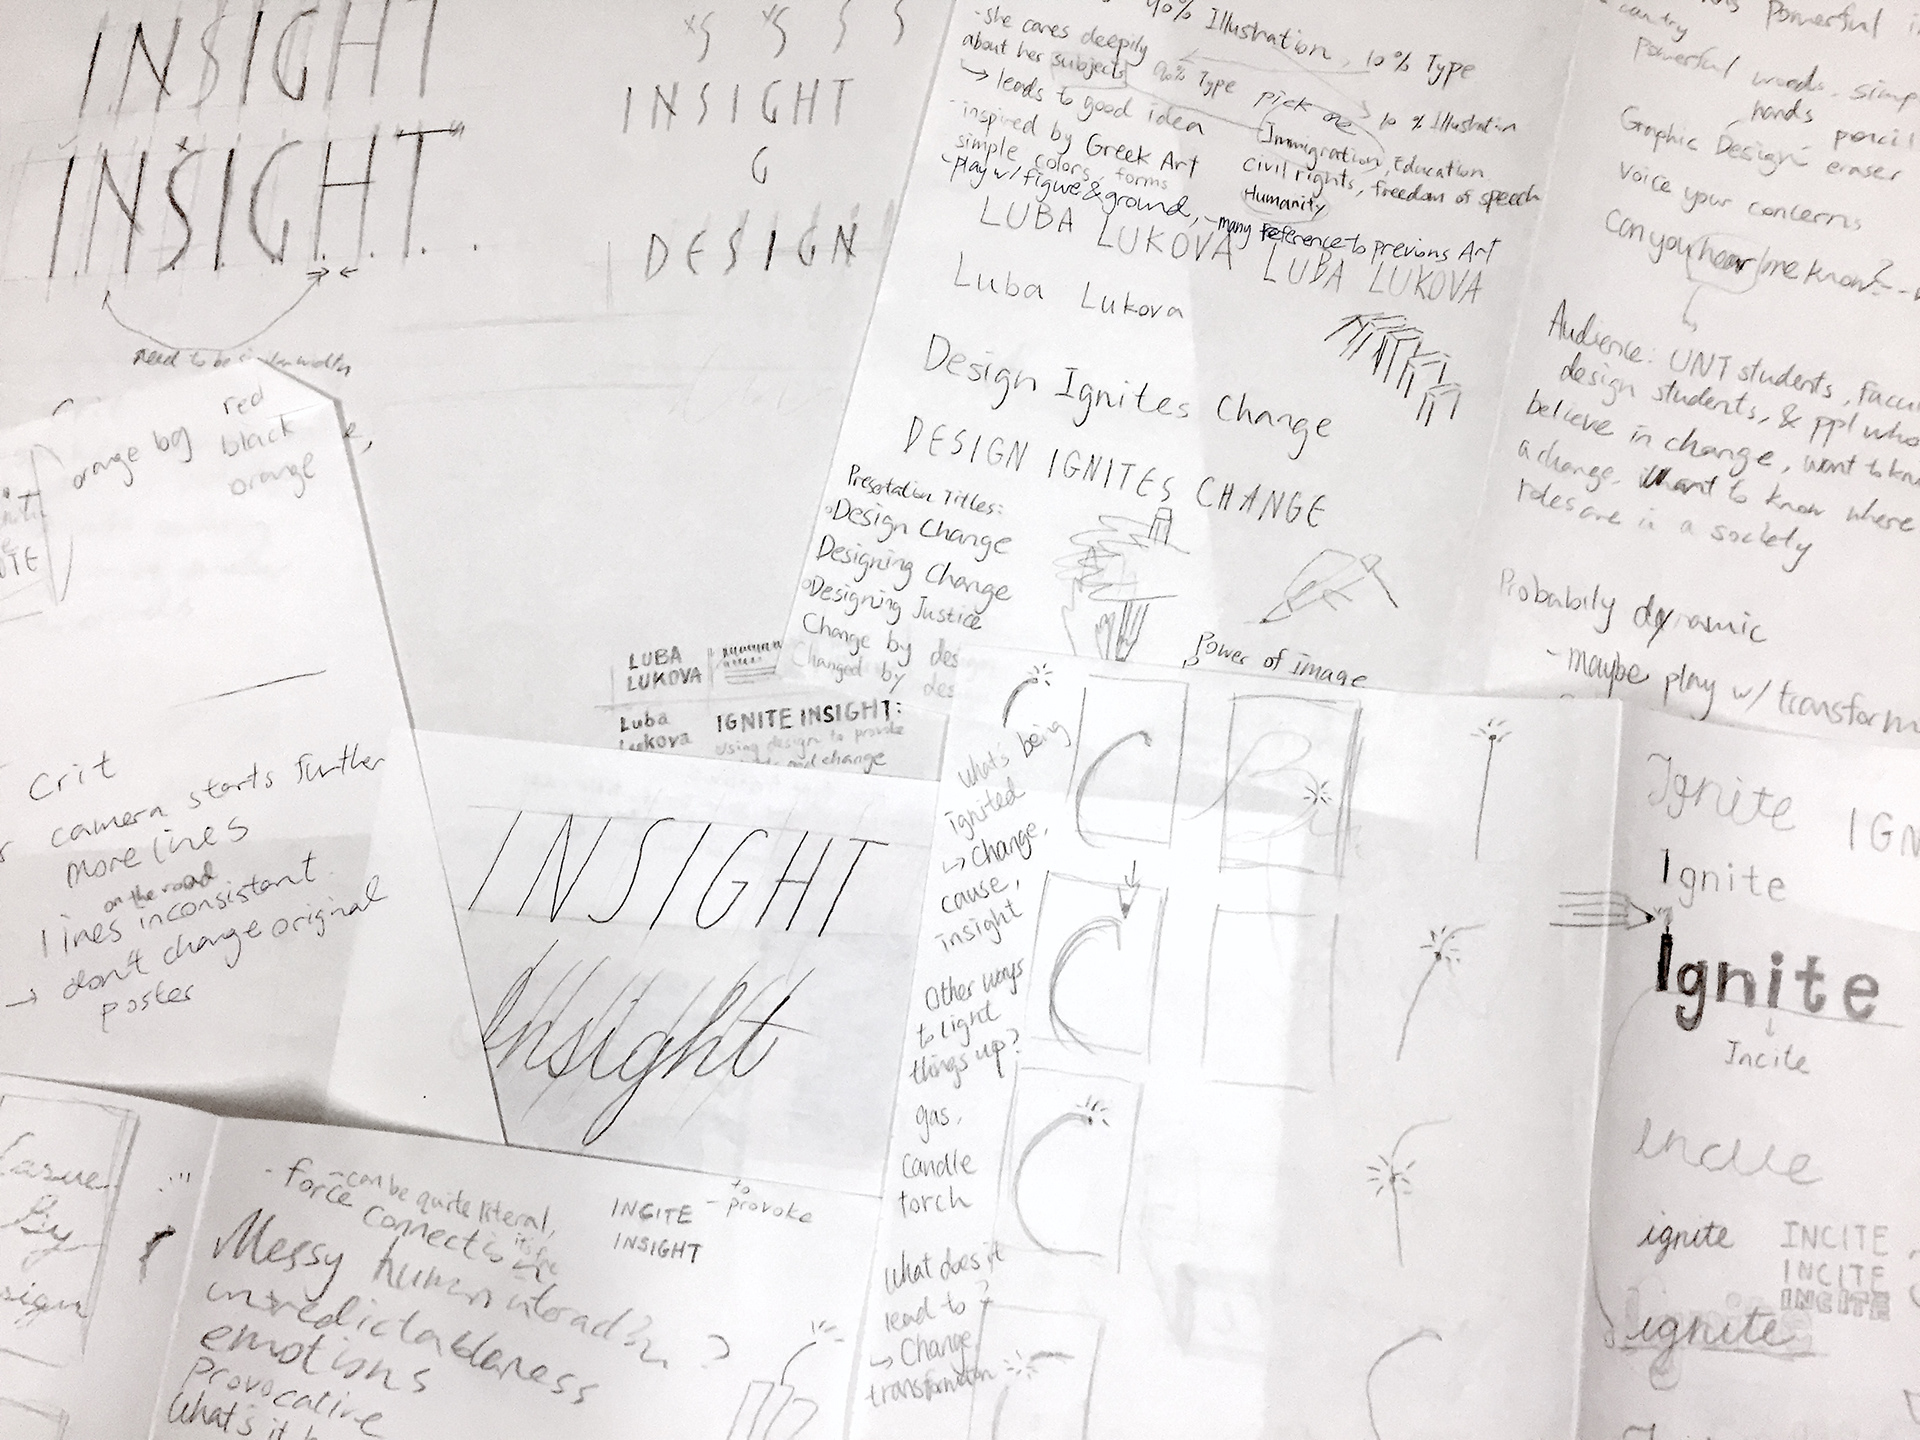 INSIGHT
INSIGHT
S S S S
INSIGHT
G
DESIGN
need to be
orange bg
red
black
orange
Crit
camera starts further
more lines
on the road
lines inconsistant
→ don't change original
poster
LUBA
LUKOVA
Luba
Lukova
IGNITE INSIGHT:
Using design to provoke
and change
INSIGHT
Insight
90% Illustration, 10% Type
-she cares deepily
about her subjects
→ leads to good idea
-inspired by Greek Art
simple colors, forms
-play w/ figure & ground,
-many reference to previous Art
90% Type
10% Illustration
pick one
Immigration, Education
civil rights, freedom of speech
Humanity
LUBA LUKOVA
LUBA LUKOVA
Luba Lukova
Design Ignites Change
DESIGN IGNITES CHANGE
Presentation Titles:
Design Change
Designing Change
Designing Justice
Change by des
Changed by des
Power of image
country
Powerful
Powerful words, simp
hands pencil
Graphic Design eraser
voice your concerns
Can you hear me know?
Audience: UNT students, Facu
design students, & ppl who
believe in change, want to kn
a change, want to know where
roles are in a society
Probabily dynamic
-maybe play w/ transform
What's being
ignited
→ Change,
cause,
insight
Other ways
to light
things up?
gas,
Candle
torch
What does it
lead to?
→ Change
transformation
Ignite
IGN
Ignite
Ignite
Incite
incite
ignite
INCITE
INCITE
INCITE
ignite
By
sign
-can be quite literal,
-force
connectio
Messy human
emotions
provocative
What's it
INCITE - to provoke
INSIGHT